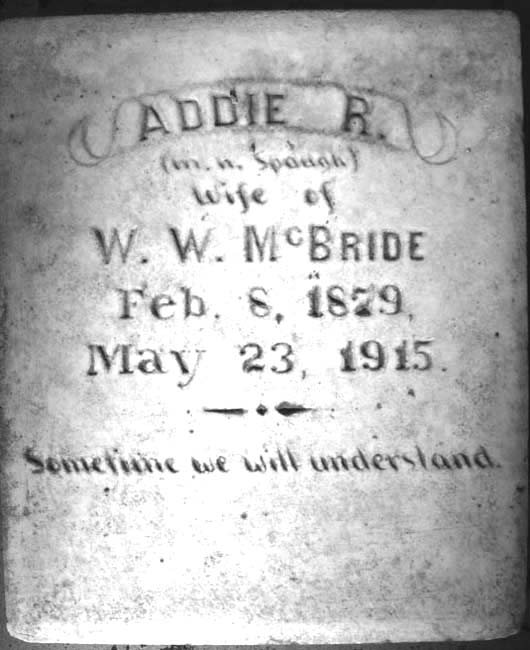 ADDIE R.
(m. n. Spaugh)
Wife of
W. W. McBRIDE
Feb. 8, 1879,
May 23, 1915.
Sometime we will understand.